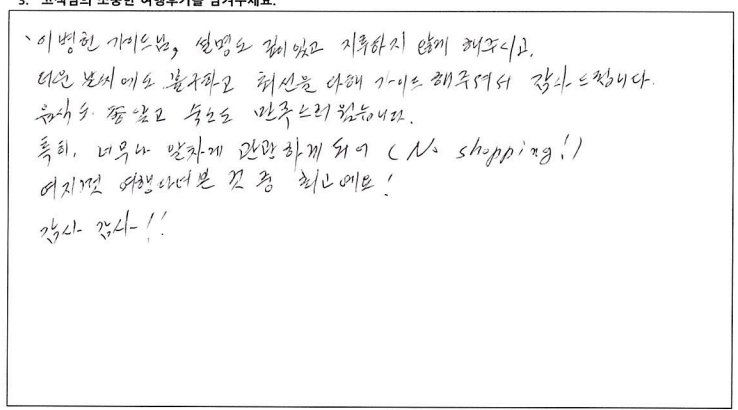 3. 고객님의 소중한 여행후기를 남겨주세요.
、이병헌 가이드님, 설명도 깊이있고 지루하지 않게 해주시고,
더운 날씨에도 불구하고 최선을 다해 가이드 해주셔서 감사드립니다.
음식도 좋았고 숙소도 만족스러웠습니다.
특히, 너무나 알차게 관광하게되어 (No shopping!)
여지껏 여행다녀본 것 중 최고예요!
감사 감사!!